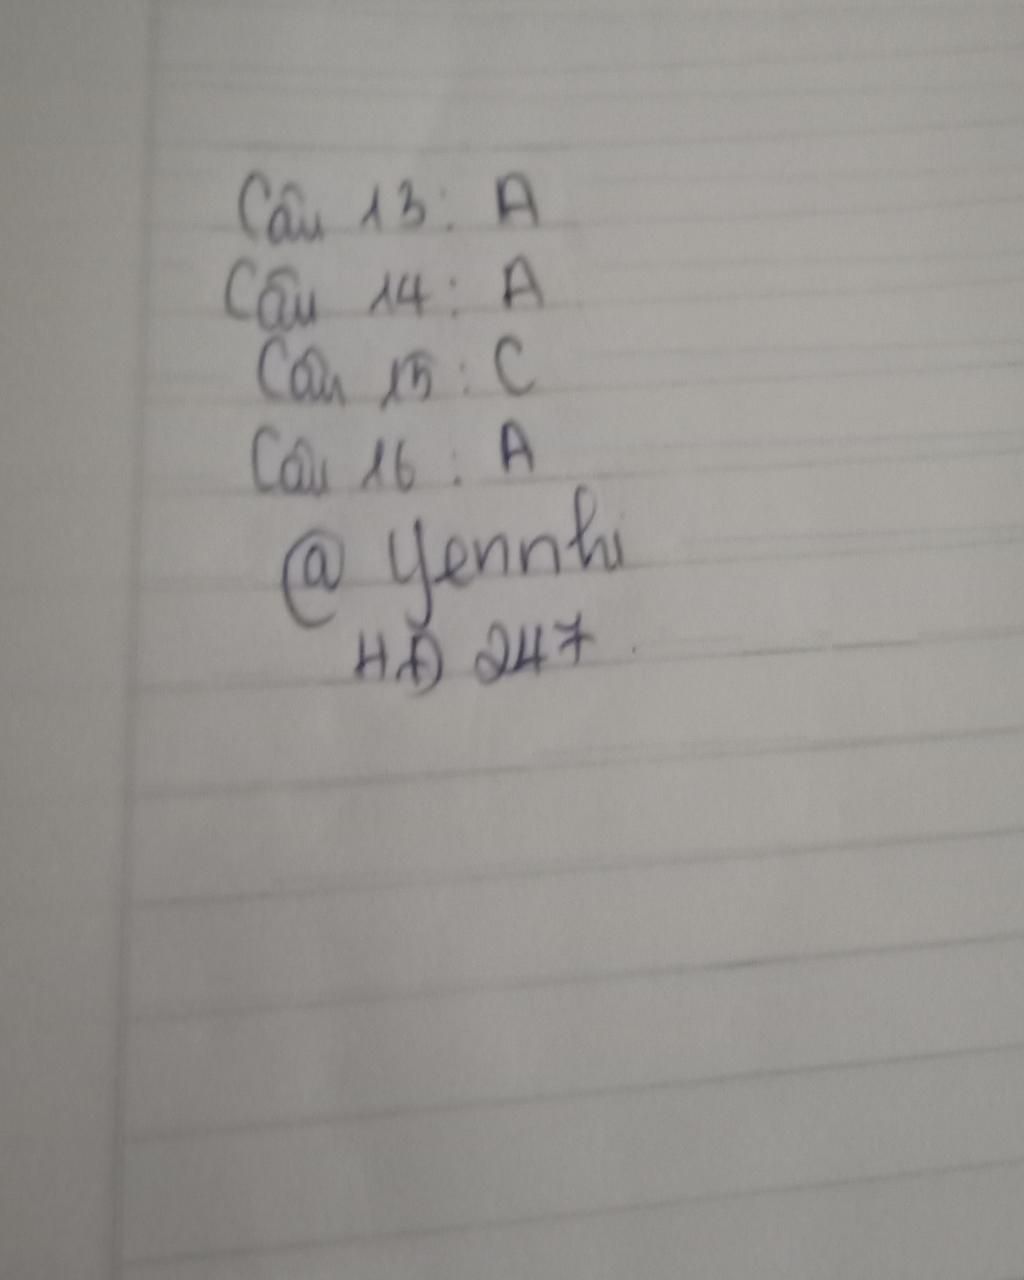 Câu 13: A
Câu 14: A
Câu 15: C
Câu 16: A
@ Yennhi
HĐ 247